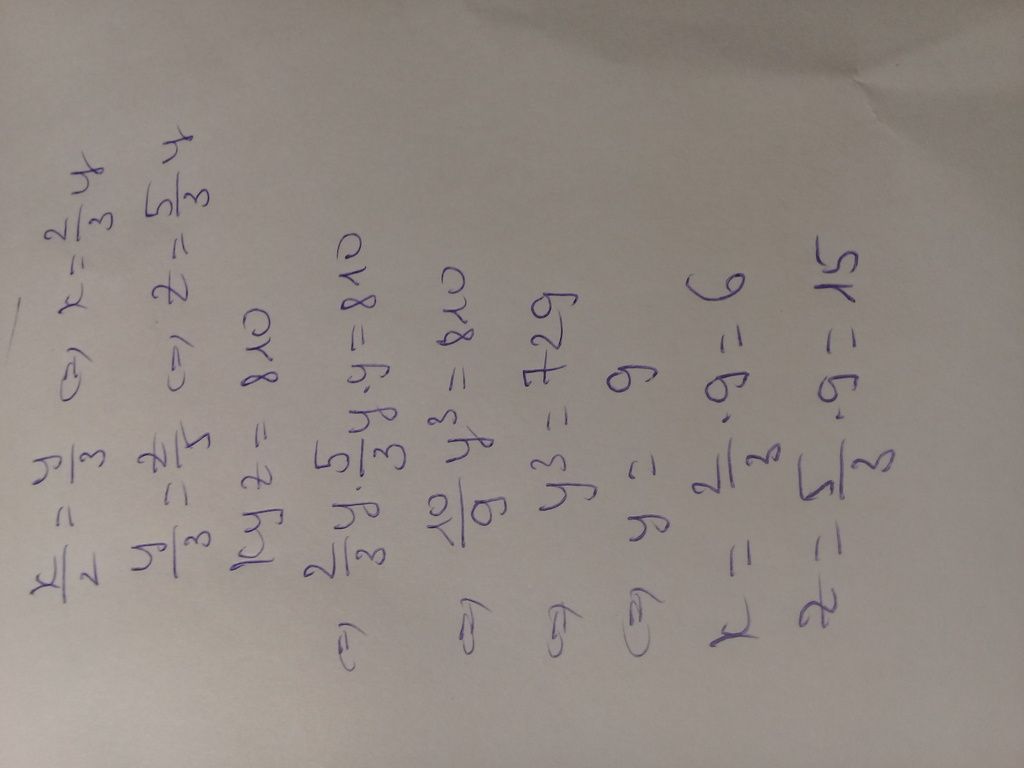 x/2 = y/3 ⇔ x = 2/3 y
y/3 = z/5 ⇔ z = 5/3 y
xyz = 810
⇔ 2/3 y · 5/3 y · y = 810
⇔ 10/9 y³ = 810
⇔ y³ = 729
⇔ y = 9
x = 2/3 · 9 = 6
z = 5/3 · 9 = 15